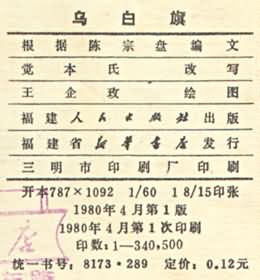 乌白旗
根据陈宗盘编文
觉本氏改写
王企玫绘图
福建人民出版社出版
福建省新华书店发行
三明市印刷厂印刷
开本787×1092 1/60 1 8/15印张
1980年4月第1版
1980年4月第1次印刷
印数:1—340,500
统一书号:8173·289 定价:0.12元